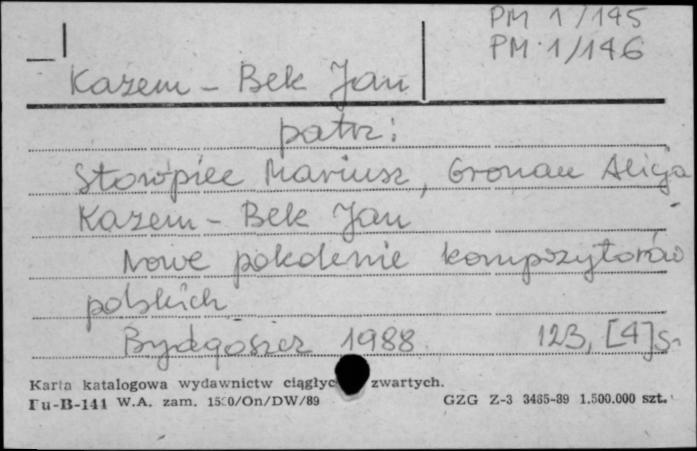 PM 1/145
PM 1/146
Kazem - Bek Jan
patrz:
Słowpiec Mariusz, Gronau Alicja
Kazem - Bek Jan
Nowe pokolenie kompozytorów
polskich
Bydgoszcz 1988 123, [4]s.
Karta katalogowa wydawnictw zwartych.
Pu-B-141 W.A. zam. /On/DW/89 GZG Z-3 3465-89 1.500.000 szt.